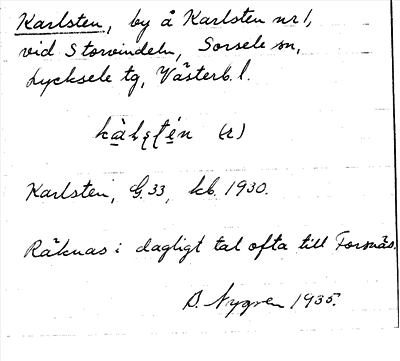 Karlsten, by å Karlsten nr 1,
vid Storvindeln, Sorsele sn,
Lycksele tg, Västerb. l.
(r)
Karlsten, G. 33, kb. 1930.
Räknas i dagligt tal ofta till Forsnäs.
D. Nygren 1935.